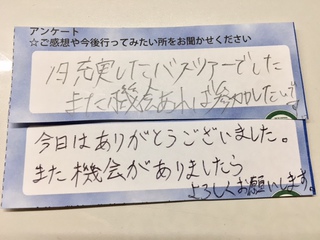 アンケート
☆ご感想や今後行ってみたい所をお聞かせください
1日充実したバスツアーでした
また機会あれば参加したいです
今日はありがとうございました。
また機会がありましたら
よろしくお願いします。